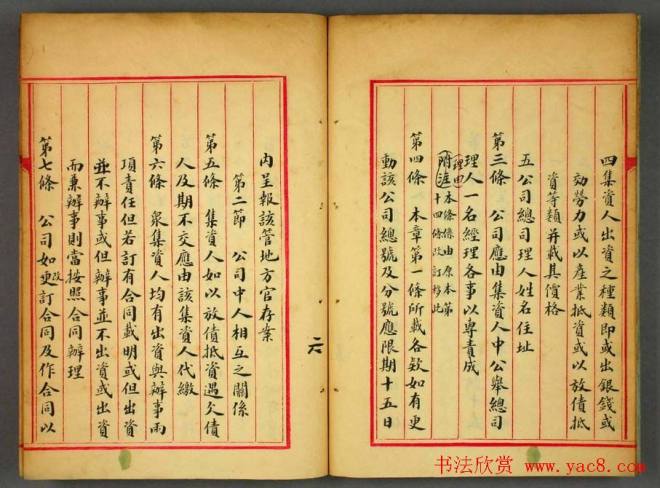 四集資人出資之種類即或出銀錢或
効勞力或以產業抵資或以放債抵
資等類并載其價格
五公司總司理人姓名住址
第三條　公司應由集資人中公舉總司
理人一名經理各事以專責成
附注
理由
本條係由原本第
十四條改訂移此
第四條　本章第一條所載各欵如有更
動該公司總號及分號應限期十五日
內呈報該管地方官存案
第二節　公司中人相互之關係
第五條　集資人如以放債抵資遇欠債
人及期不交應由該集資人代繳
第六條　衆集資人均有出資與辦事兩
項責任但若訂有合同載明或但出資
並不辦事或但辦事並不出資或出資
而兼辦事則當按照合同辦理
第七條　公司如更改訂合同及作合同以
二六
书法欣赏 www.yac8.com